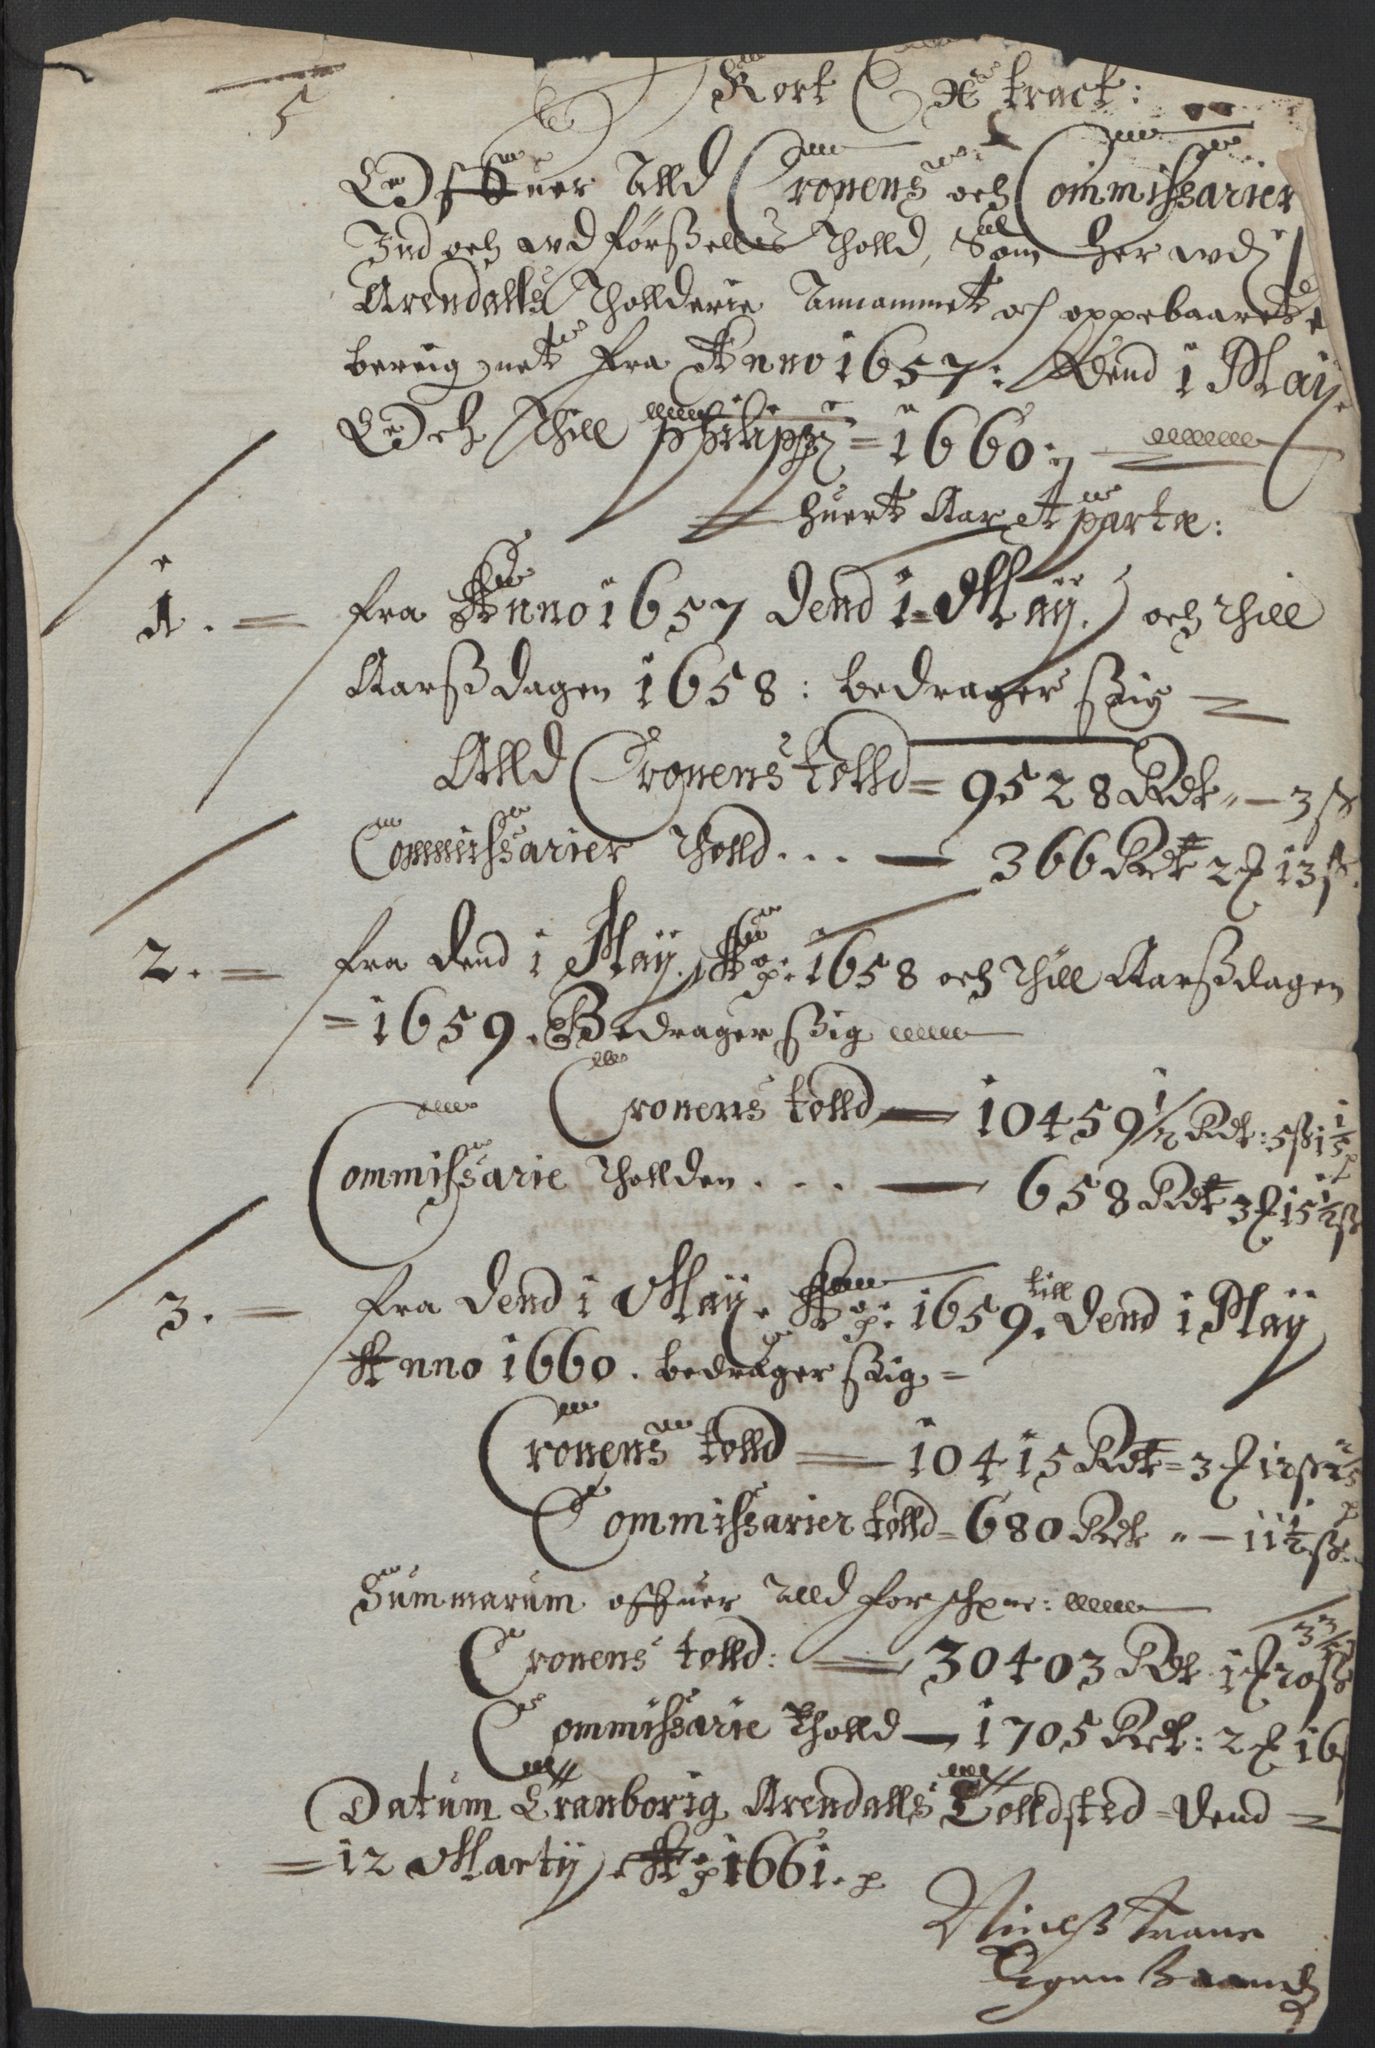 5
Kort Extract:
Offuer Alld Cronens och Commissarier
Ind och wdførßells Tholld, Som her wdj
Arendalls Thollderie Annammet och oppebaaret e
bereignet Fra Anno 1657: Dend 1 Maÿ
Och Thill Philippi = 1660:
huert Aar it parte:
1. = fra Anno 1657 Dend 1 = Maÿ. och Thill
Aarßdagen 1658: bedrager ßig =
Alld Cronens tolld = 9528 Rdr " - 3 ß
Commissarier Tholld... — 366 Rdr 2 X 13 ß.
2. = fra Dend 1 Maÿ. Ao: 1658 och Thill Aarßdagen
= 1659. Bedrager ßig
Cronens tolld — 10459 1/2 Rdr: 5 ß 1 1/5
Commissarie Thollden... — 658 Rdr 3 X 15 1/2 ß
3. = fra Dend 1 Maÿ. Ao: 1659. till Dend 1 Maÿ
Anno 1660. bedrager ßig =
Cronens tolld = 10415 Rdr = 3 X 12 ß 2/5
Commissarier tolld = 680 Rdr " - 11 1/2 ß.
Summarum offuer Alld for:
Cronens tolld: = 30403 Rdr 1 X 20 ß
Commissarie Tholld — 1705 Rdr: 2 X 16 ß
Datum Tranborig Arendalls Tolldsted = Dend =
= 12 Martÿ Ao 1661.
Nielß Trane
Egen Haand